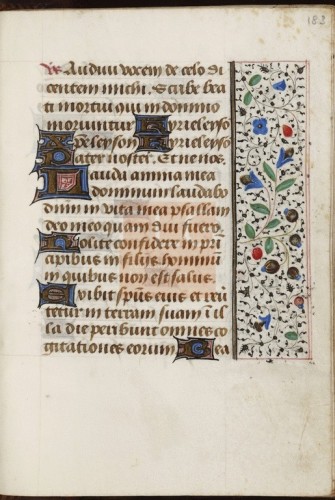 182
Audivi vocem de celo di
centem michi. Scribe bea
ti mortui qui in domino
moriuntur Kyrieleyso
Xpeleyson Kyrieleyson
Pater noster. Et ne nos.
Lauda anima mea
dominum laudabo
dnm in vita mea psallam
deo meo quam diu fuero.
Nolite confidere in prin
cipibus in filijs hominum
in quibus non est salus.
Exibit spus eius et rever
tetur in terram suam in il
la die peribunt omnes co
gitationes eorum